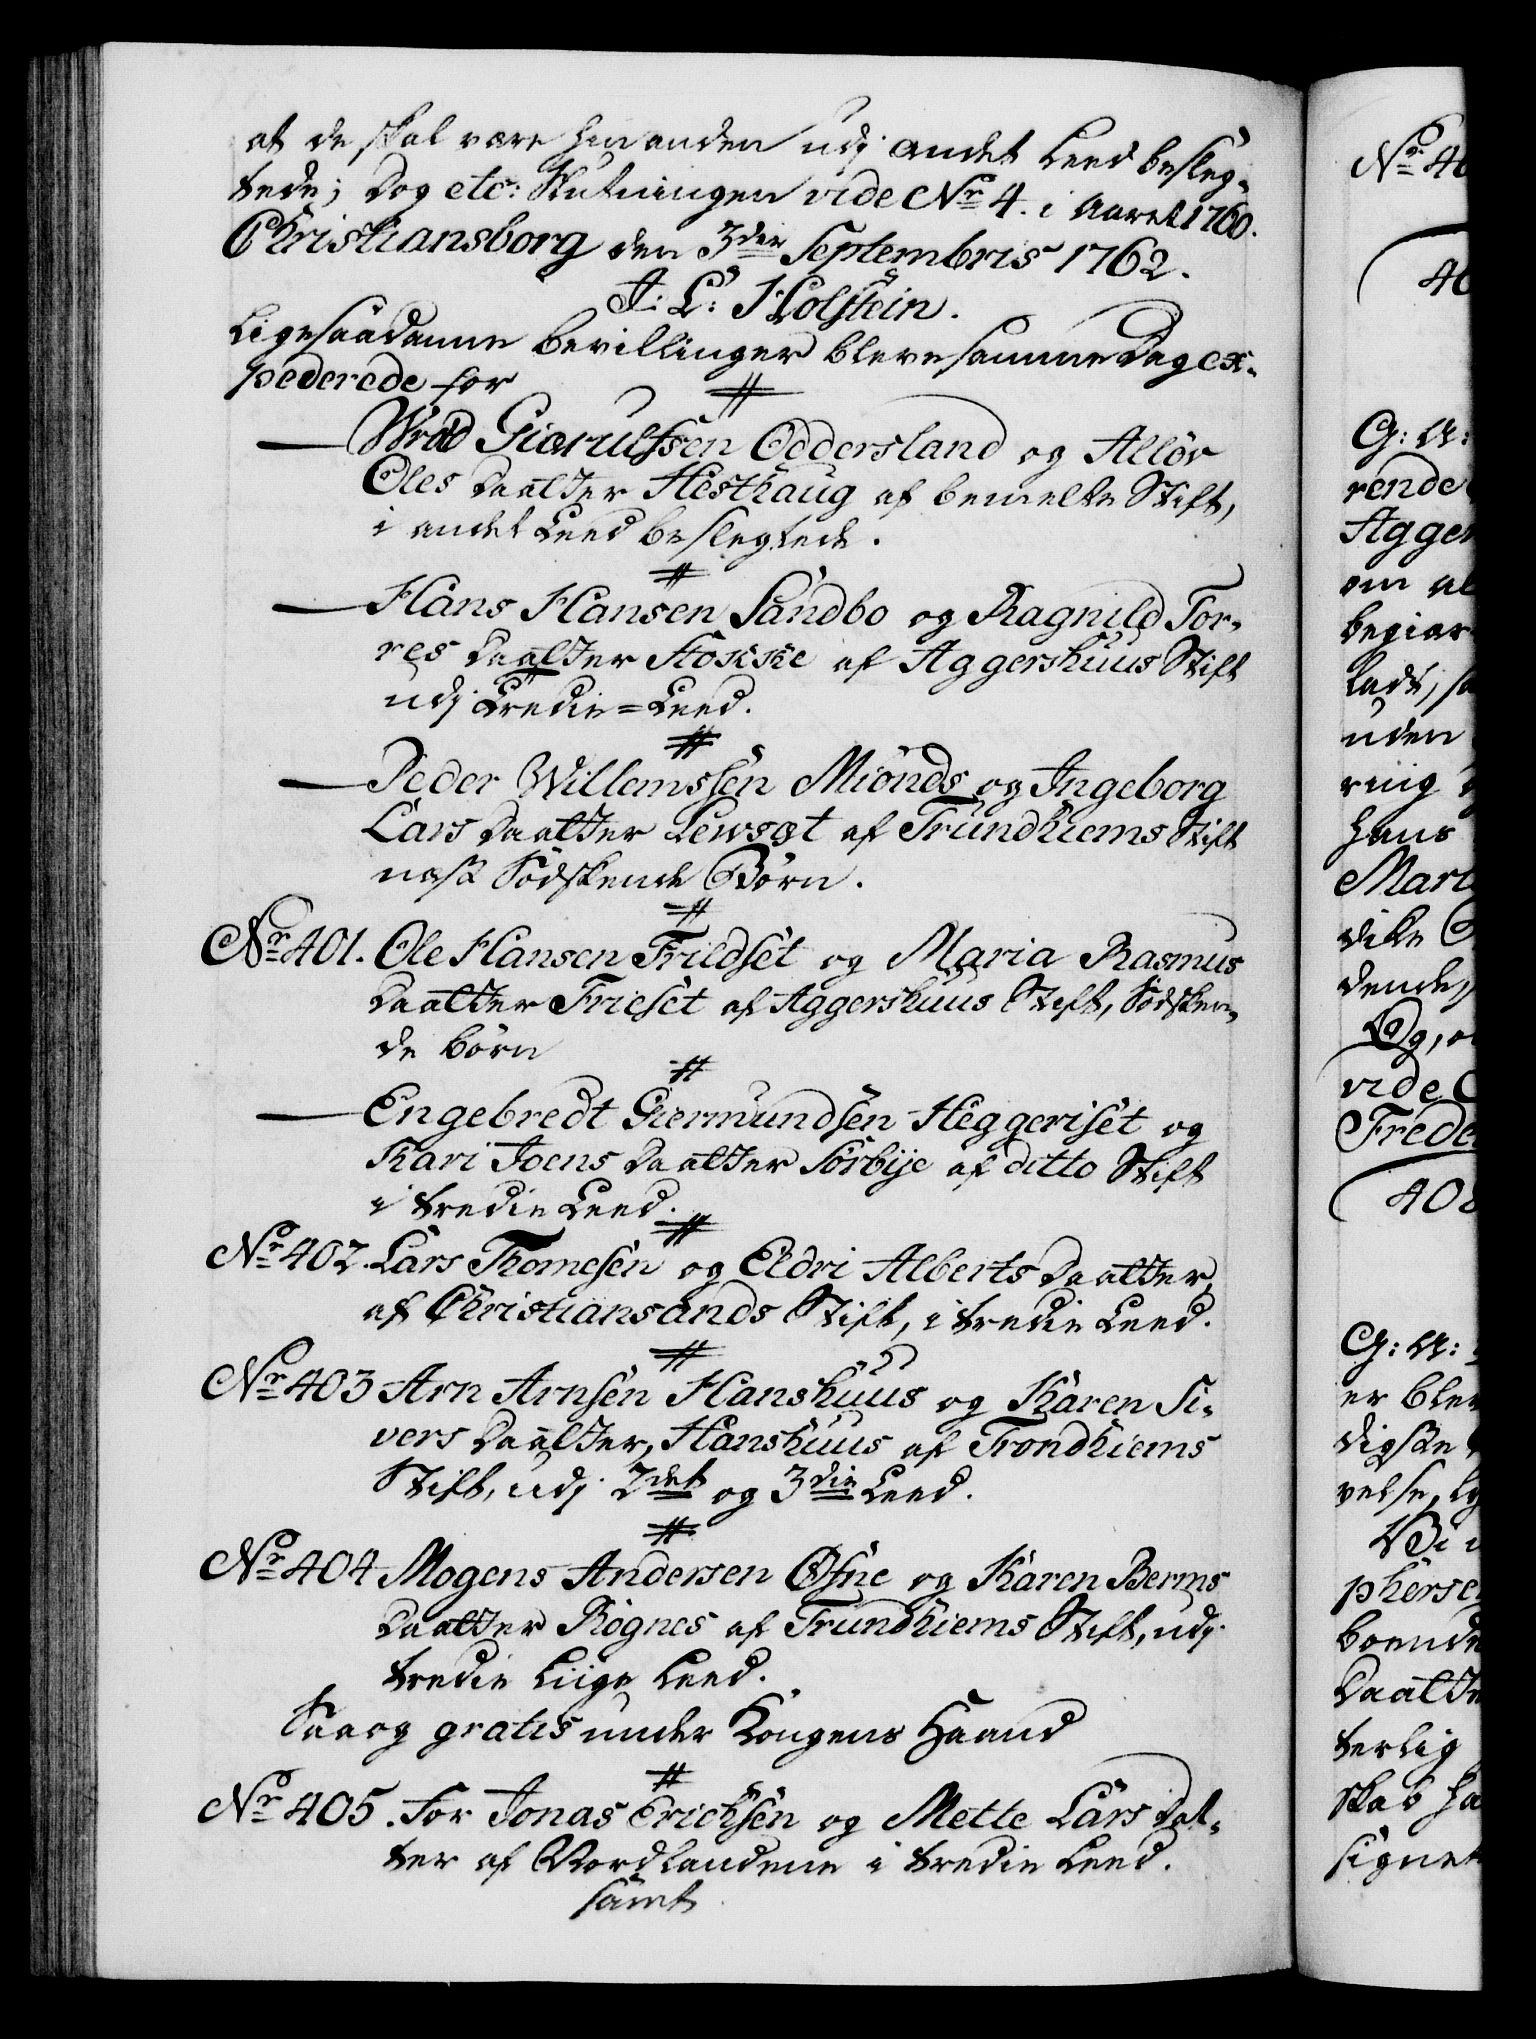 at de skal være hinanden udj andet Leed besleg-
tede; dog etc: Slutningen vide No 4. i Aaret 1760.
Christiansborg den 3die Septembris 1762.
J: L: Holstein.
Ligesaadanne bevillinger bleve samme Dag ex-
pederede for
— Wraad Giærulfsen Oddersland og Allør
Oles Daatter Hesthaug af bemelte Stift,
i andet Leed beslegtede.
— Hans Hansen Sandbo og Ragnild Tor-
res Daatter Stokke af Aggershuus Stift
udj Tredie=Leed.
— Peder Willemssen Miønds og Ingeborg
Lars Daatter Lewsæt af Trundhiems Stift
næst Södskende Börn.
No 401. Ole Hansen Frildset og Maria Rasmus
Daatter Frieset af Aggershuus Stift, Södsken-
de börn
— Engebredt Giermundsen Heggeriset og
Kari Joens Daatter Sörbije af ditto Stift
i tredie Leed.
No 402. Lars Thomesen og Eldri Alberts Daatter,
af Christiansands Stift, i tredie Leed.
No 403 Arn Arnsen Hanshuus og Karen Si-
vers Daatter, Hanshuus af Trondhiems
Stift, udj 2det og 3die Leed.
No 404 Mogens Andersen Øfne og Karen Berms
Daatter Rognes af Trundhiems Stift, udj
tredie Liige Leed.
Saa og gratis under Kongens Haand
No 405. For Jonas Erichsen og Mette Lars Dat-
ter af Nordlandene i tredie Leed.
samt
No 40
40
G: A:
rende
Agger
om at
begiær
lade, sa
uden
ring
hans
Mart
dike
dende,
Og, o
vide
Frede
408
G: A:
er blev
digste
velse,
Vi
pherse
boende
Daatte
terlig
skab ha
signet